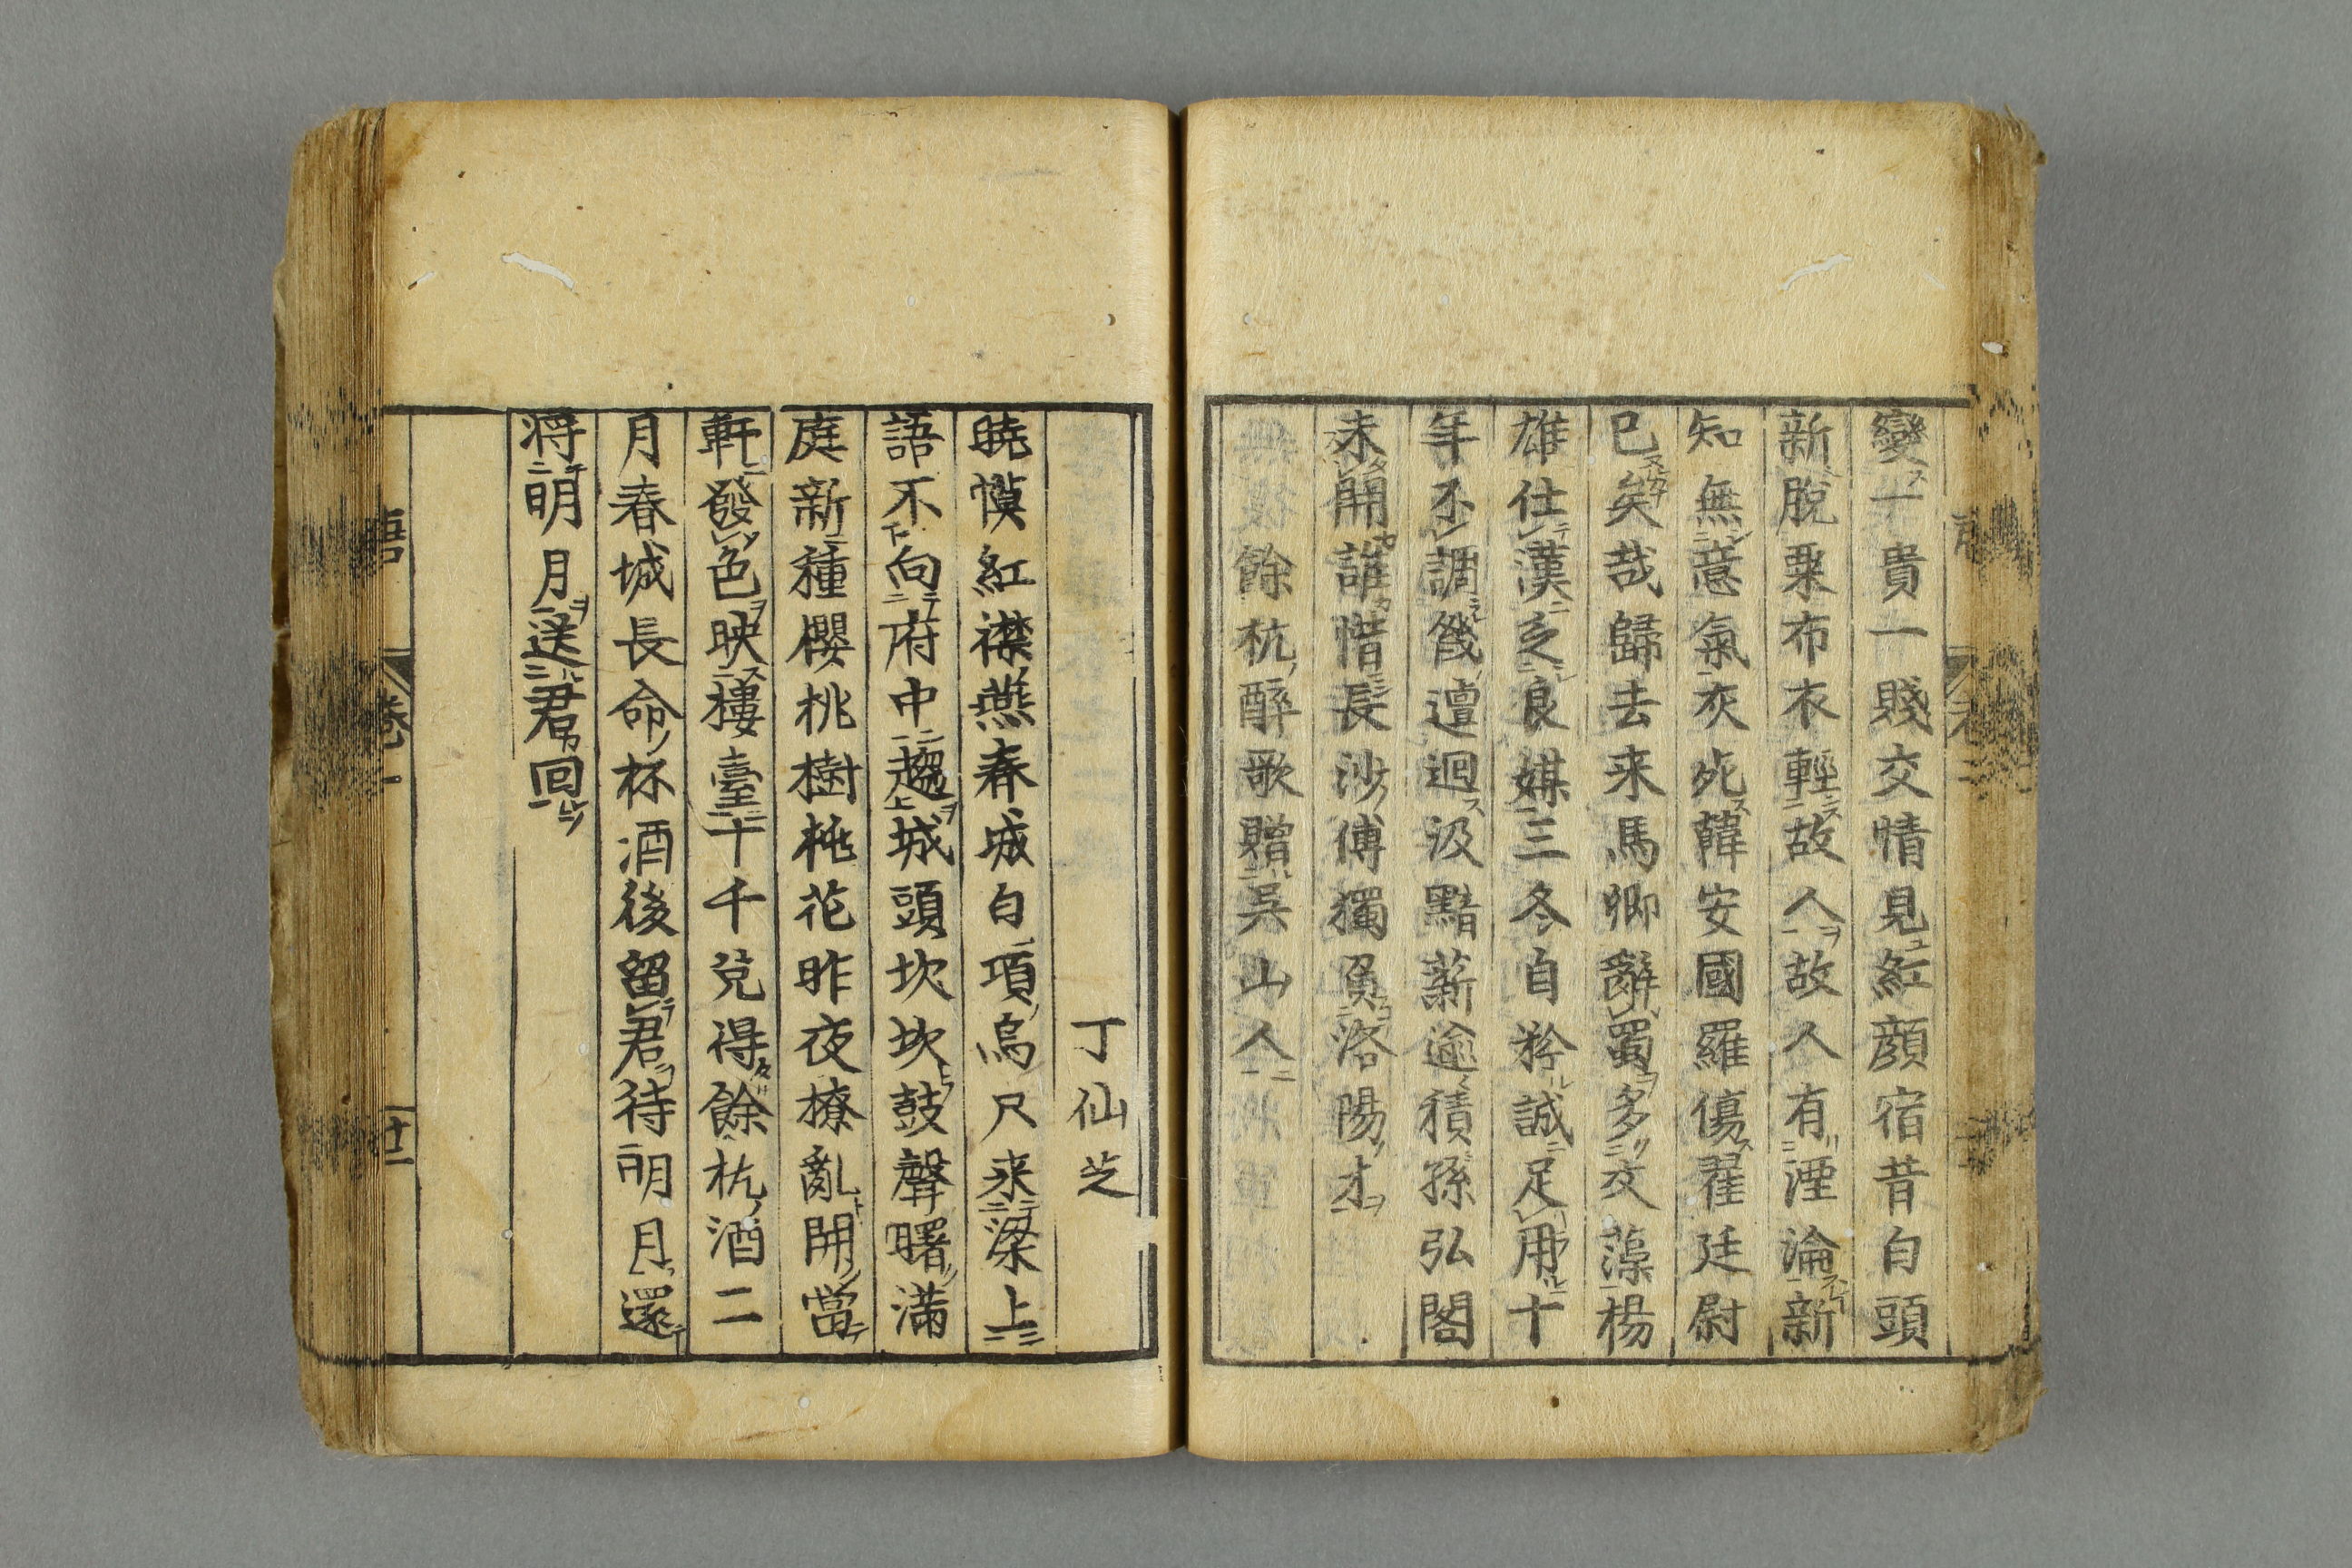 變一貴一賤交情見紅顏宿昔白頭
新脫粟布衣輕故人故人有湮淪新
知無意氣灰死韓安國羅傷翟廷尉
已矣哉歸去来馬卿辭蜀多文藻楊
雄仕漢乏良媒三冬自矜誠足用十
年不調幾邅迴汲黯薪逾積孫弘閣
未開誰惜長沙傅獨負洛陽才
餘杭醉歌贈吳山人
丁仙芝
曉幙紅襟燕春城白項烏尺来梁上
語不向府中趨城頭坎坎鼓聲曙滿
庭新種櫻桃樹桃花昨夜撩亂開當
軒發色映樓臺十千兌得餘杭酒二
月春城長命杯酒後留君待明月還
將明月送君回
卷一
廿二